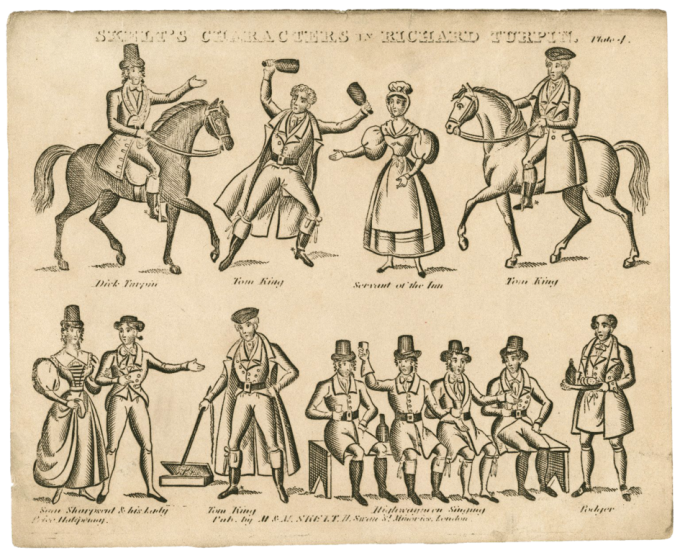 SKELT'S CHARACTERS IN RICHARD TURPIN. Plate 4.
Dick Turpin
Tom King
Servant of the Inn
Tom King
Sam Sharpwit & his Lady
Tom King
Highwaymen Singing
Podger
Price Halfpenny.
Pub. by M & M. SKELT, 11, Swan St. Minories, London